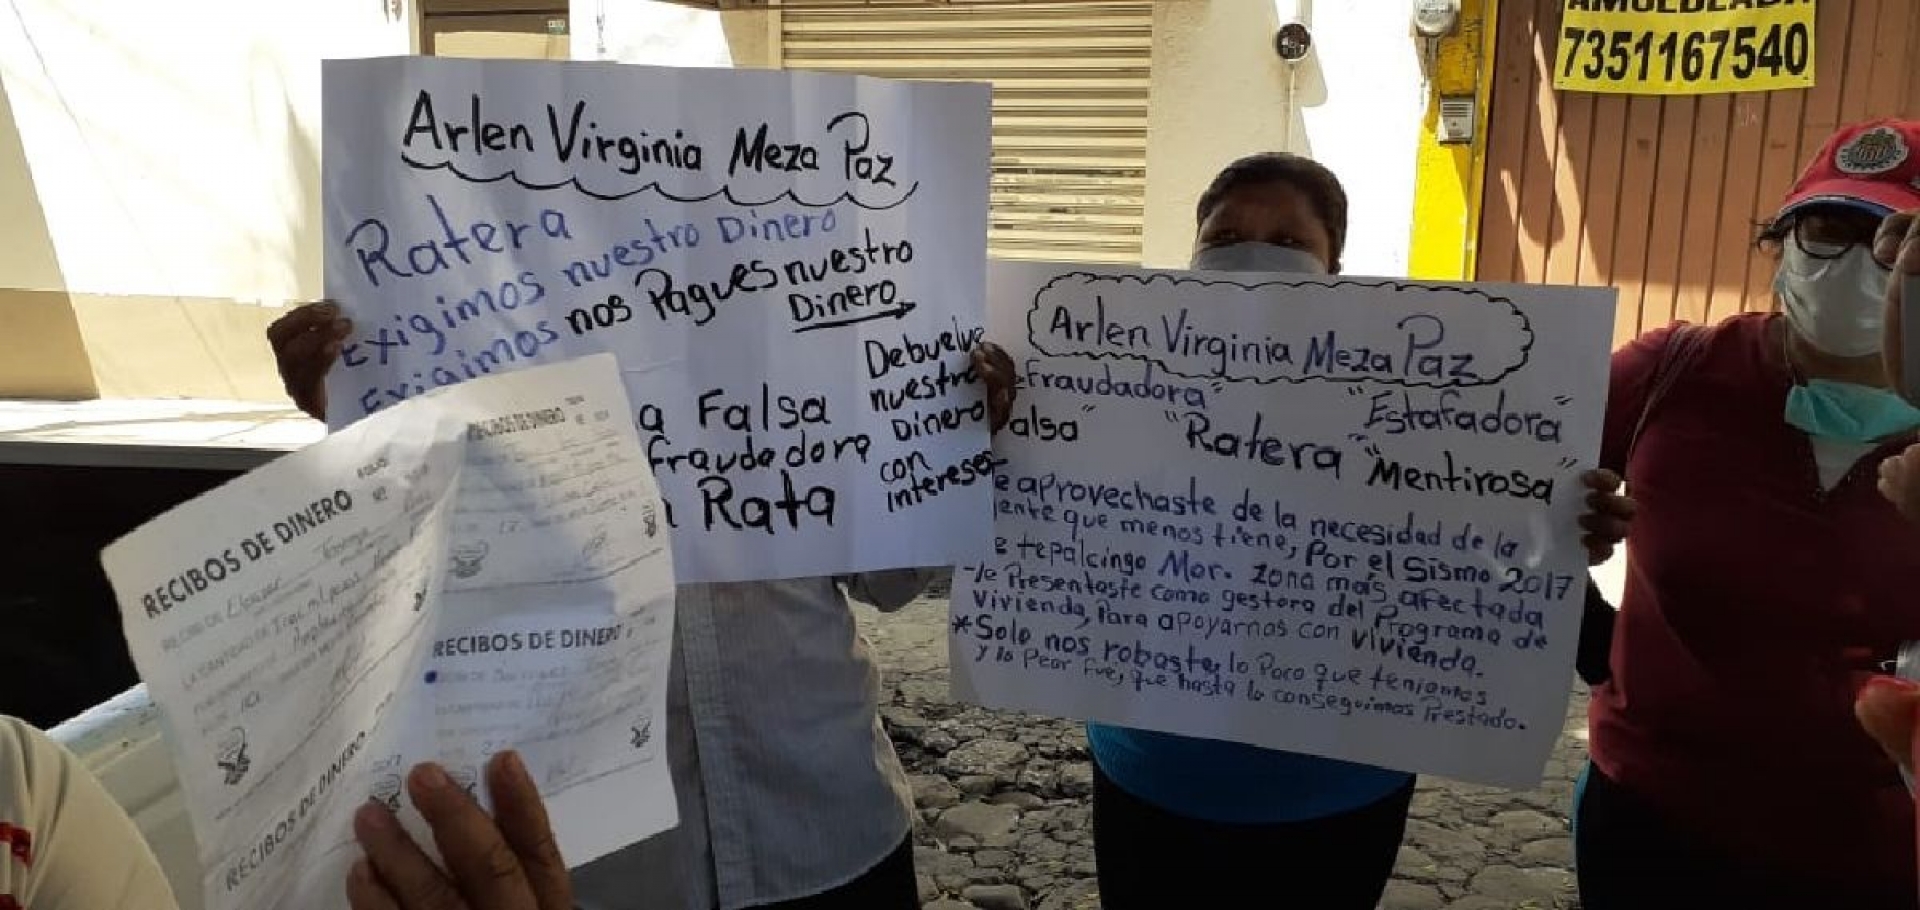 AMUEBLADA
7351167540
Arlen Virginia Meza Paz
Ratera
Exigimos nuestro Dinero
Exigimos nos Pagues nuestro
Dinero
a Falsa
fraudadora
Rata
Debuelve
nuestro
Dinero
con
intereses
Arlen Virginia Meza Paz
Fraudadora" "Estafadora"
alsa" "Ratera "Mentirosa"
e aprovechaste de la necesidad de la
ente que menos tiene, Por el Sismo 2017
e tepalcingo Mor. zona más afectada
-te Presentaste como gestora del Programa de
Vivienda, Para apoyarnos con vivienda.
*Solo nos robaste, lo Poco que teniamos
y lo Peor fue, que hasta lo conseguimos Prestado.
RECIBOS DE DINERO
RECIBOS DE DINERO
RECIBOS DE DINERO
RECIBOS DE DINERO